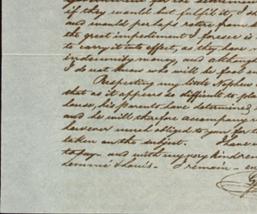 if they would not fulfil it, I th
and would perhaps retire from
the great impediment I foresee is
to carry it into effect, as they have n
indemnity money, and although
I do not know who will be foun
Respecting my little Nephew
that as it appears so difficult to pla
his Parents have determined
and he will therefore accompany
however much obliged to you for t
taken on the subject. I have n
to pay and with my very kindest
I remain